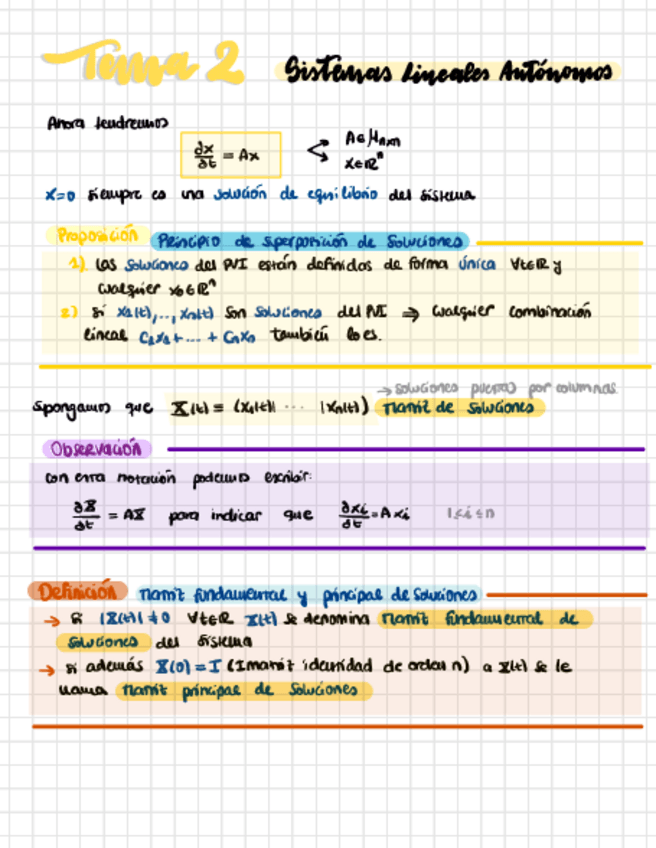 Tema 2 Sistemas Lineales Autónomos
Ahora tendremos
∂x/∂t = Ax < A∈M_{n×n}
x∈ℝⁿ
x=0 siempre es una solución de equilibrio del sistema
Proposición Principio de superposición de soluciones
1) Las soluciones del PVI están definidas de forma única ∀t∈ℝ y
cualquier x₀∈ℝⁿ
2) Si x₁(t),..., xₙ(t) son soluciones del PVI ⇒ cualquier combinación
lineal C₁x₁+...+ Cₙxₙ también lo es.
→ soluciones puestas por columnas
Spongamos que X(t) ≡ (x₁(t)| ··· |xₙ(t)) Matriz de soluciones
Observación
Con esta notación podemos escribir:
∂X/∂t = AX para indicar que ∂xᵢ/∂t = Axᵢ 1≤i≤n
Definición Matriz fundamental y principal de soluciones
→ Si |X(t)| ≠ 0 ∀t∈ℝ X(t) se denomina Matriz fundamental de
soluciones del sistema
→ Si además X(0) = I (I matriz identidad de orden n) a X(t) se le
llama Matriz principal de soluciones